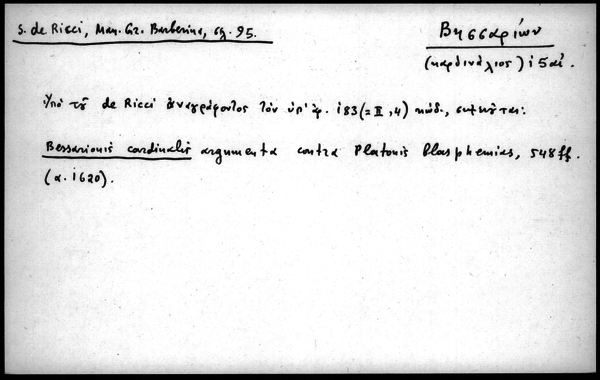 S. de Ricci, Man. Gr. Barberina, σχ. 95.
Βησσαρίων
(καρδινάλιος) i5 αἰ.
Ὑπὸ τοῦ de Ricci ἀναγράφοντος τὸν ὑπ' ἀρ. i83 (= II, 4) κώδ., σημειοῦται:
Bessarionis cardinalis argumenta contra Platonis blasphemias, 548 ff.
(α. i620).